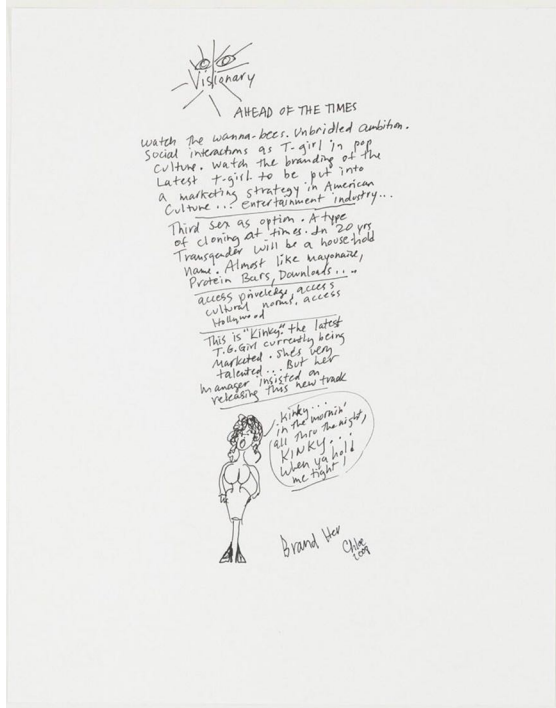 Visionary
AHEAD OF THE TIMES
Watch the wanna-bees. Unbridled ambition.
Social interactions as T-girl in pop
Culture. Watch the branding of the
Latest t-girl to be put into
a marketing strategy in American
Culture... entertainment industry...
Third Sex as option. A type
of cloning at times. In 20 yrs
Transgender will be a household
name. Almost like mayonaise,
Protein Bars, Downloads....
access priveledge, access
cultural norms, access
Hollywood
This is "Kinky" the latest
T.G. Girl currently being
Marketed. She's very
talented... But her
manager insisted on
releasing this new track
Kinky...
in the mornin'
all thru the night,
KINKY...
when ya hold
me tight!
Brand Her
Chloe
2009